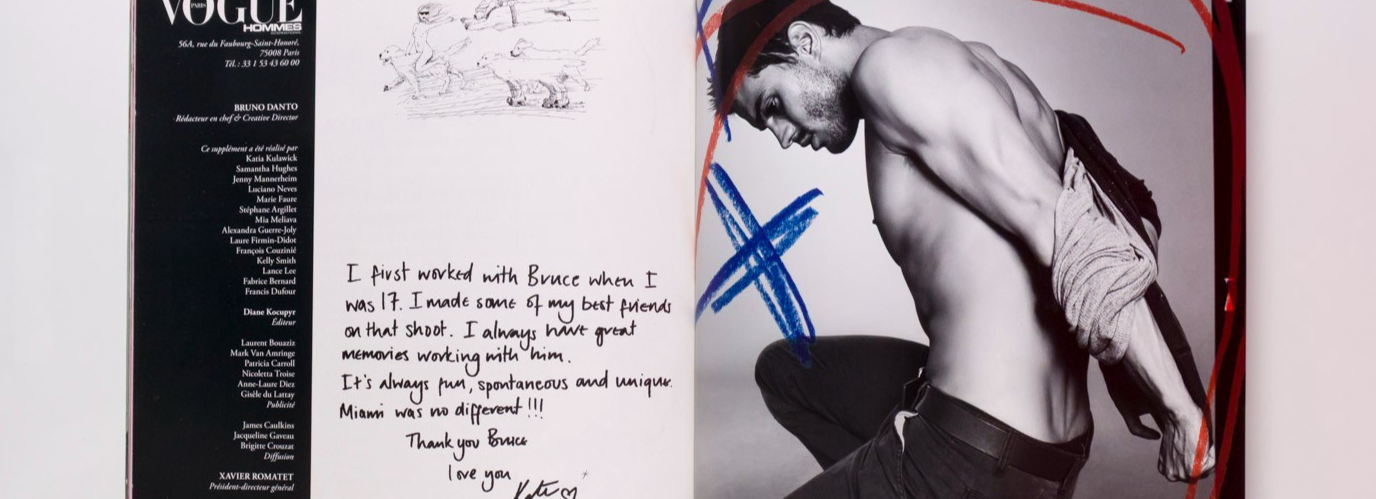 VOGUE
PARIS
HOMMES
INTERNATIONAL
56A, rue du Faubourg-Saint-Honoré,
75008 Paris
Tél. : 33 1 53 43 60 00
BRUNO DANTO
Rédacteur en chef & Creative Director
Ce supplément a été réalisé par
Katia Kulawick
Samantha Hughes
Jenny Mannerheim
Luciano Neves
Marie Faure
Stéphane Argillet
Mia Meliava
Alexandra Guerre-Joly
Laure Firmin-Didot
François Couzinié
Kelly Smith
Lance Lee
Fabrice Bernard
Francis Dufour
Diane Kocupyr
Éditeur
Laurent Bouaziz
Mark Van Amringe
Patricia Carroll
Nicoletta Troise
Anne-Laure Diez
Gisèle du Lattay
Publicité
James Caulkins
Jacqueline Gaveau
Brigitte Crouzat
Diffusion
XAVIER ROMATET
Président-directeur général
I first worked with Bruce when I
was 17. I made some of my best friends
on that shoot. I always have great
memories working with him.
It's always fun, spontaneous and unique.
Miami was no different!!!
Thank you Bruce
love you
Kate